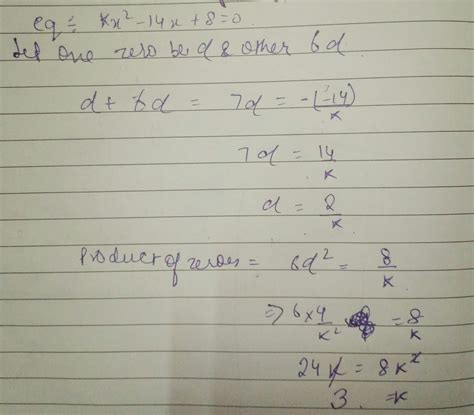 eq ÷ kx² - 14x + 8 = 0
let one zero be d & other 6d
d + 6d = 7d = -(-14)/k
7d = 14/k
d = 2/k
Product of zeroes = 6d² = 8/k
⇒ 6 × 4/k² = 8/k
24k = 8k²
3 = k